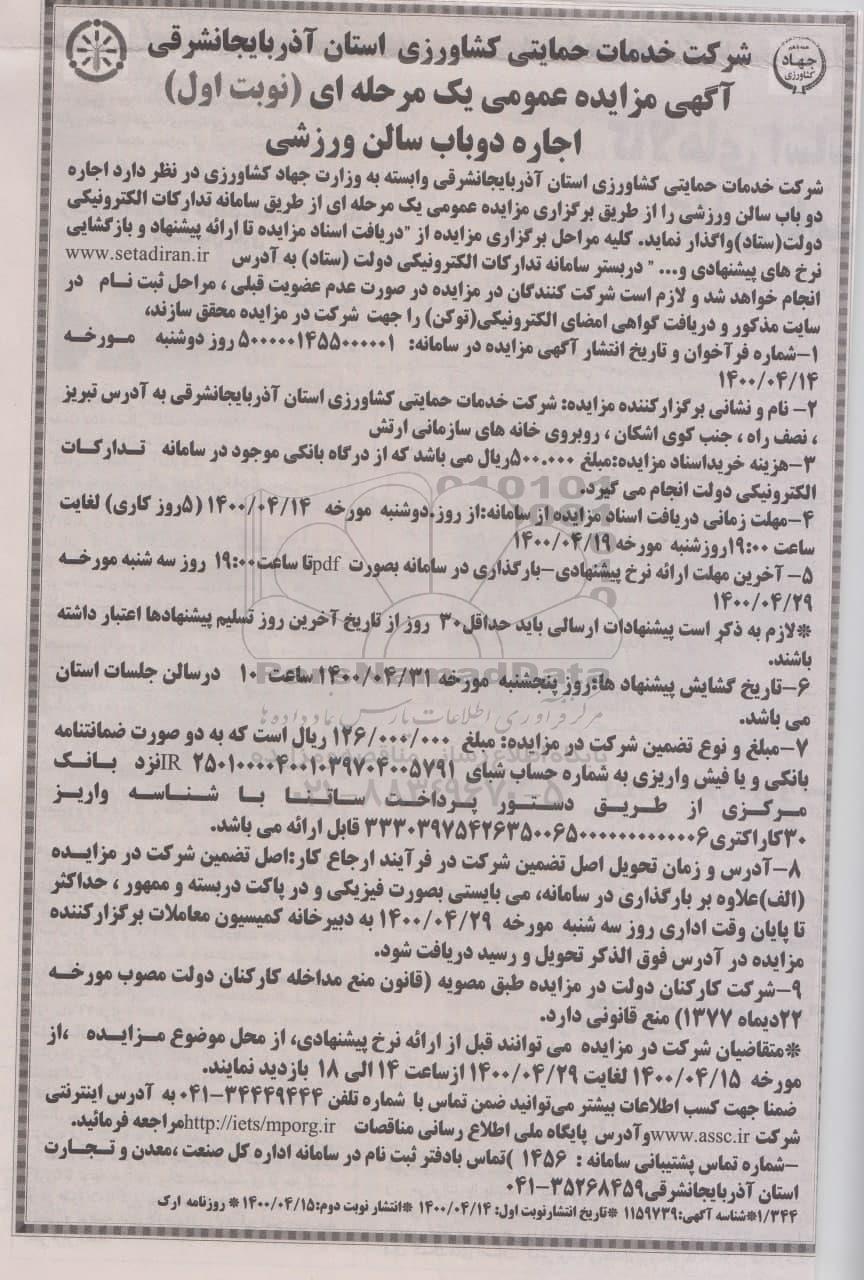 شرکت خدمات حمایتی کشاورزی استان آذربایجانشرقی
جهاد کشاورزی
آگهی مزایده عمومی یک مرحله ای (نوبت اول)
اجاره دوباب سالن ورزشی
شرکت خدمات حمایتی کشاورزی استان آذربایجانشرقی وابسته به وزارت جهاد کشاورزی در نظر دارد اجاره
دو باب سالن ورزشی را از طریق برگزاری مزایده عمومی یک مرحله ای از طریق سامانه تدارکات الکترونیکی
دولت(ستاد)واگذار نماید. کلیه مراحل برگزاری مزایده از "دریافت اسناد مزایده تا ارائه پیشنهاد و بازگشایی
نرخ های پیشنهادی و... " دربستر سامانه تدارکات الکترونیکی دولت (ستاد) به آدرس www.setadiran.ir
انجام خواهد شد و لازم است شرکت کنندگان در مزایده در صورت عدم عضویت قبلی ، مراحل ثبت نـام در
سایت مذکور و دریافت گواهی امضای الکترونیکی(توکن) را جهت شرکت در مزایده محقق سازند،
۱-شماره فرآخوان و تاریخ انتشار آگهی مزایده در سامانه: ۵۰۰۰۰۰۱۴۵۵۰۰۰۰۰۱ روز دوشنبه مـورخـه
۱۴۰۰/۰۴/۱۴
۲- نام و نشانی برگزارکننده مزایده: شرکت خدمات حمایتی کشاورزی استان آذربایجانشرقی به آدرس تبریز
، نصف راه ، جنب کوی اشکان ، روبروی خانه های سازمانی ارتش
۳-هزینه خریداسناد مزایده:مبلغ ۵۰۰.۰۰۰ریال می باشد که از درگاه بانکی موجود در سامانه تـدارکـات
الکترونیکی دولت انجام می گیرد.
۴-مهلت زمانی دریافت اسناد مزایده از سامانه:از روز.دوشنبه مورخه ۱۴۰۰/۰۴/۱۴ (۵روز کاری) لغایت
ساعت ۱۹:۰۰روزشنبه مورخه ۱۴۰۰/۰۴/۱۹
۵- آخرین مهلت ارائه نرخ پیشنهادی-بارگذاری در سامانه بصورت pdfتا ساعت۱۹:۰۰ روز سه شنبه مورخـه
۱۴۰۰/۰۴/۲۹
*لازم به ذکر است پیشنهادات ارسالی باید حداقل۳۰ روز از تاریخ آخرین روز تسلیم پیشنهادها اعتبار داشته
باشند.
۶-تاریخ گشایش پیشنهاد ها:روز پنجشنبه مورخه ۱۴۰۰/۰۴/۳۱ ساعت ۱۰ درسالن جلسات استان
می باشد.
ParsNamadData
مرکز فرآوری اطلاعات پارس نماد داده ها
۷-مبلغ و نوع تضمین شرکت در مزایده: مبلغ ۱۲۶/۰۰۰/۰۰۰ ریال است که به دو صورت ضمانتنامه
بانکی و یا فیش واریزی به شماره حساب شبای IR ۲۵۰۱۰۰۰۰۴۰۰۱۰۳۹۷۰۴۰۰۵۷۹۱نزد بـانـک
مـرکـزی از طـریـق دستـور پـرداخـت سـاتـنـا بـا شـنـاسـه واریـز
۳۰کاراکتری۳۳۳۰۳۹۷۵۴۲۶۳۵۰۰۶۵۰۰۰۰۰۰۰۰۰۰۰۰۶ قابل ارائه می باشد.
۸-آدرس و زمان تحویل اصل تضمین شرکت در فرآیند ارجاع کار:اصل تضمین شرکت در مزایـده
(الف)علاوه بر بارگذاری در سامانه، می بایستی بصورت فیزیکی و در پاکت دربسته و ممهور ، حداکثر
تا پایان وقت اداری روز سه شنبه مورخه ۱۴۰۰/۰۴/۲۹ به دبیرخانه کمیسیون معاملات برگزارکننده
مزایده در آدرس فوق الذکر تحویل و رسید دریافت شود.
۹-شرکت کارکنان دولت در مزایده طبق مصوبه (قانون منع مداخله کارکنان دولت مصوب مورخـه
۲۲دیماه ۱۳۷۷) منع قانونی دارد.
*متقاضیان شرکت در مزایده می توانند قبل از ارائه نرخ پیشنهادی، از محل موضوع مـزایـده ،از
مورخه ۱۴۰۰/۰۴/۱۵ لغایت ۱۴۰۰/۰۴/۲۹ ازساعت ۱۴ الی ۱۸ بازدید نمایند.
ضمنا جهت کسب اطلاعات بیشتر می‌توانید ضمن تماس با شماره تلفن ۳۴۴۴۹۴۴۴-۰۴۱ به آدرس اینترنتی
شرکت www.assc.irوآدرس پایگاه ملی اطلاع رسانی مناقصات http://iets/mporg.irمراجعه فرمائید.
-شماره تماس پشتیبانی سامانه : ۱۴۵۶ )تماس بادفتر ثبت نام در سامانه اداره کل صنعت ،معدن و تـجـارت
استان آذربایجانشرقی۳۵۲۶۸۴۵۹-۰۴۱
۱/۳۴۴*شناسه آگهی:۱۱۵۹۷۳۹ *تاریخ انتشارنوبت اول: ۱۴۰۰/۰۴/۱۴ *انتشار نوبت دوم:۱۴۰۰/۰۴/۱۵ * روزنامه ارک